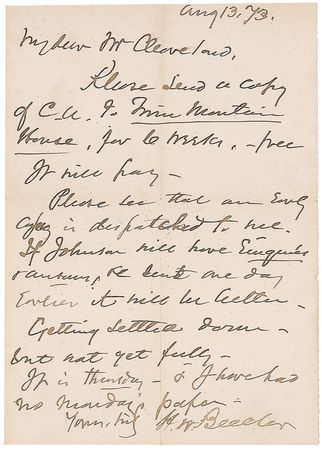 Aug 13. 73.
My dear Mr Cleveland,
Please send a copy
of C.U. to Twin Mountain
House, for 6 weeks, - free
It will pay -
Please see that an Early
Copy is despatched to me.
If Johnson will have Enquiries
& answers, be sent one day
Earlier it will be better -
Getting settled down -
but not yet fully -
It is thursday - & I have had
no monday paper -
Yours truly H. W. Beecher